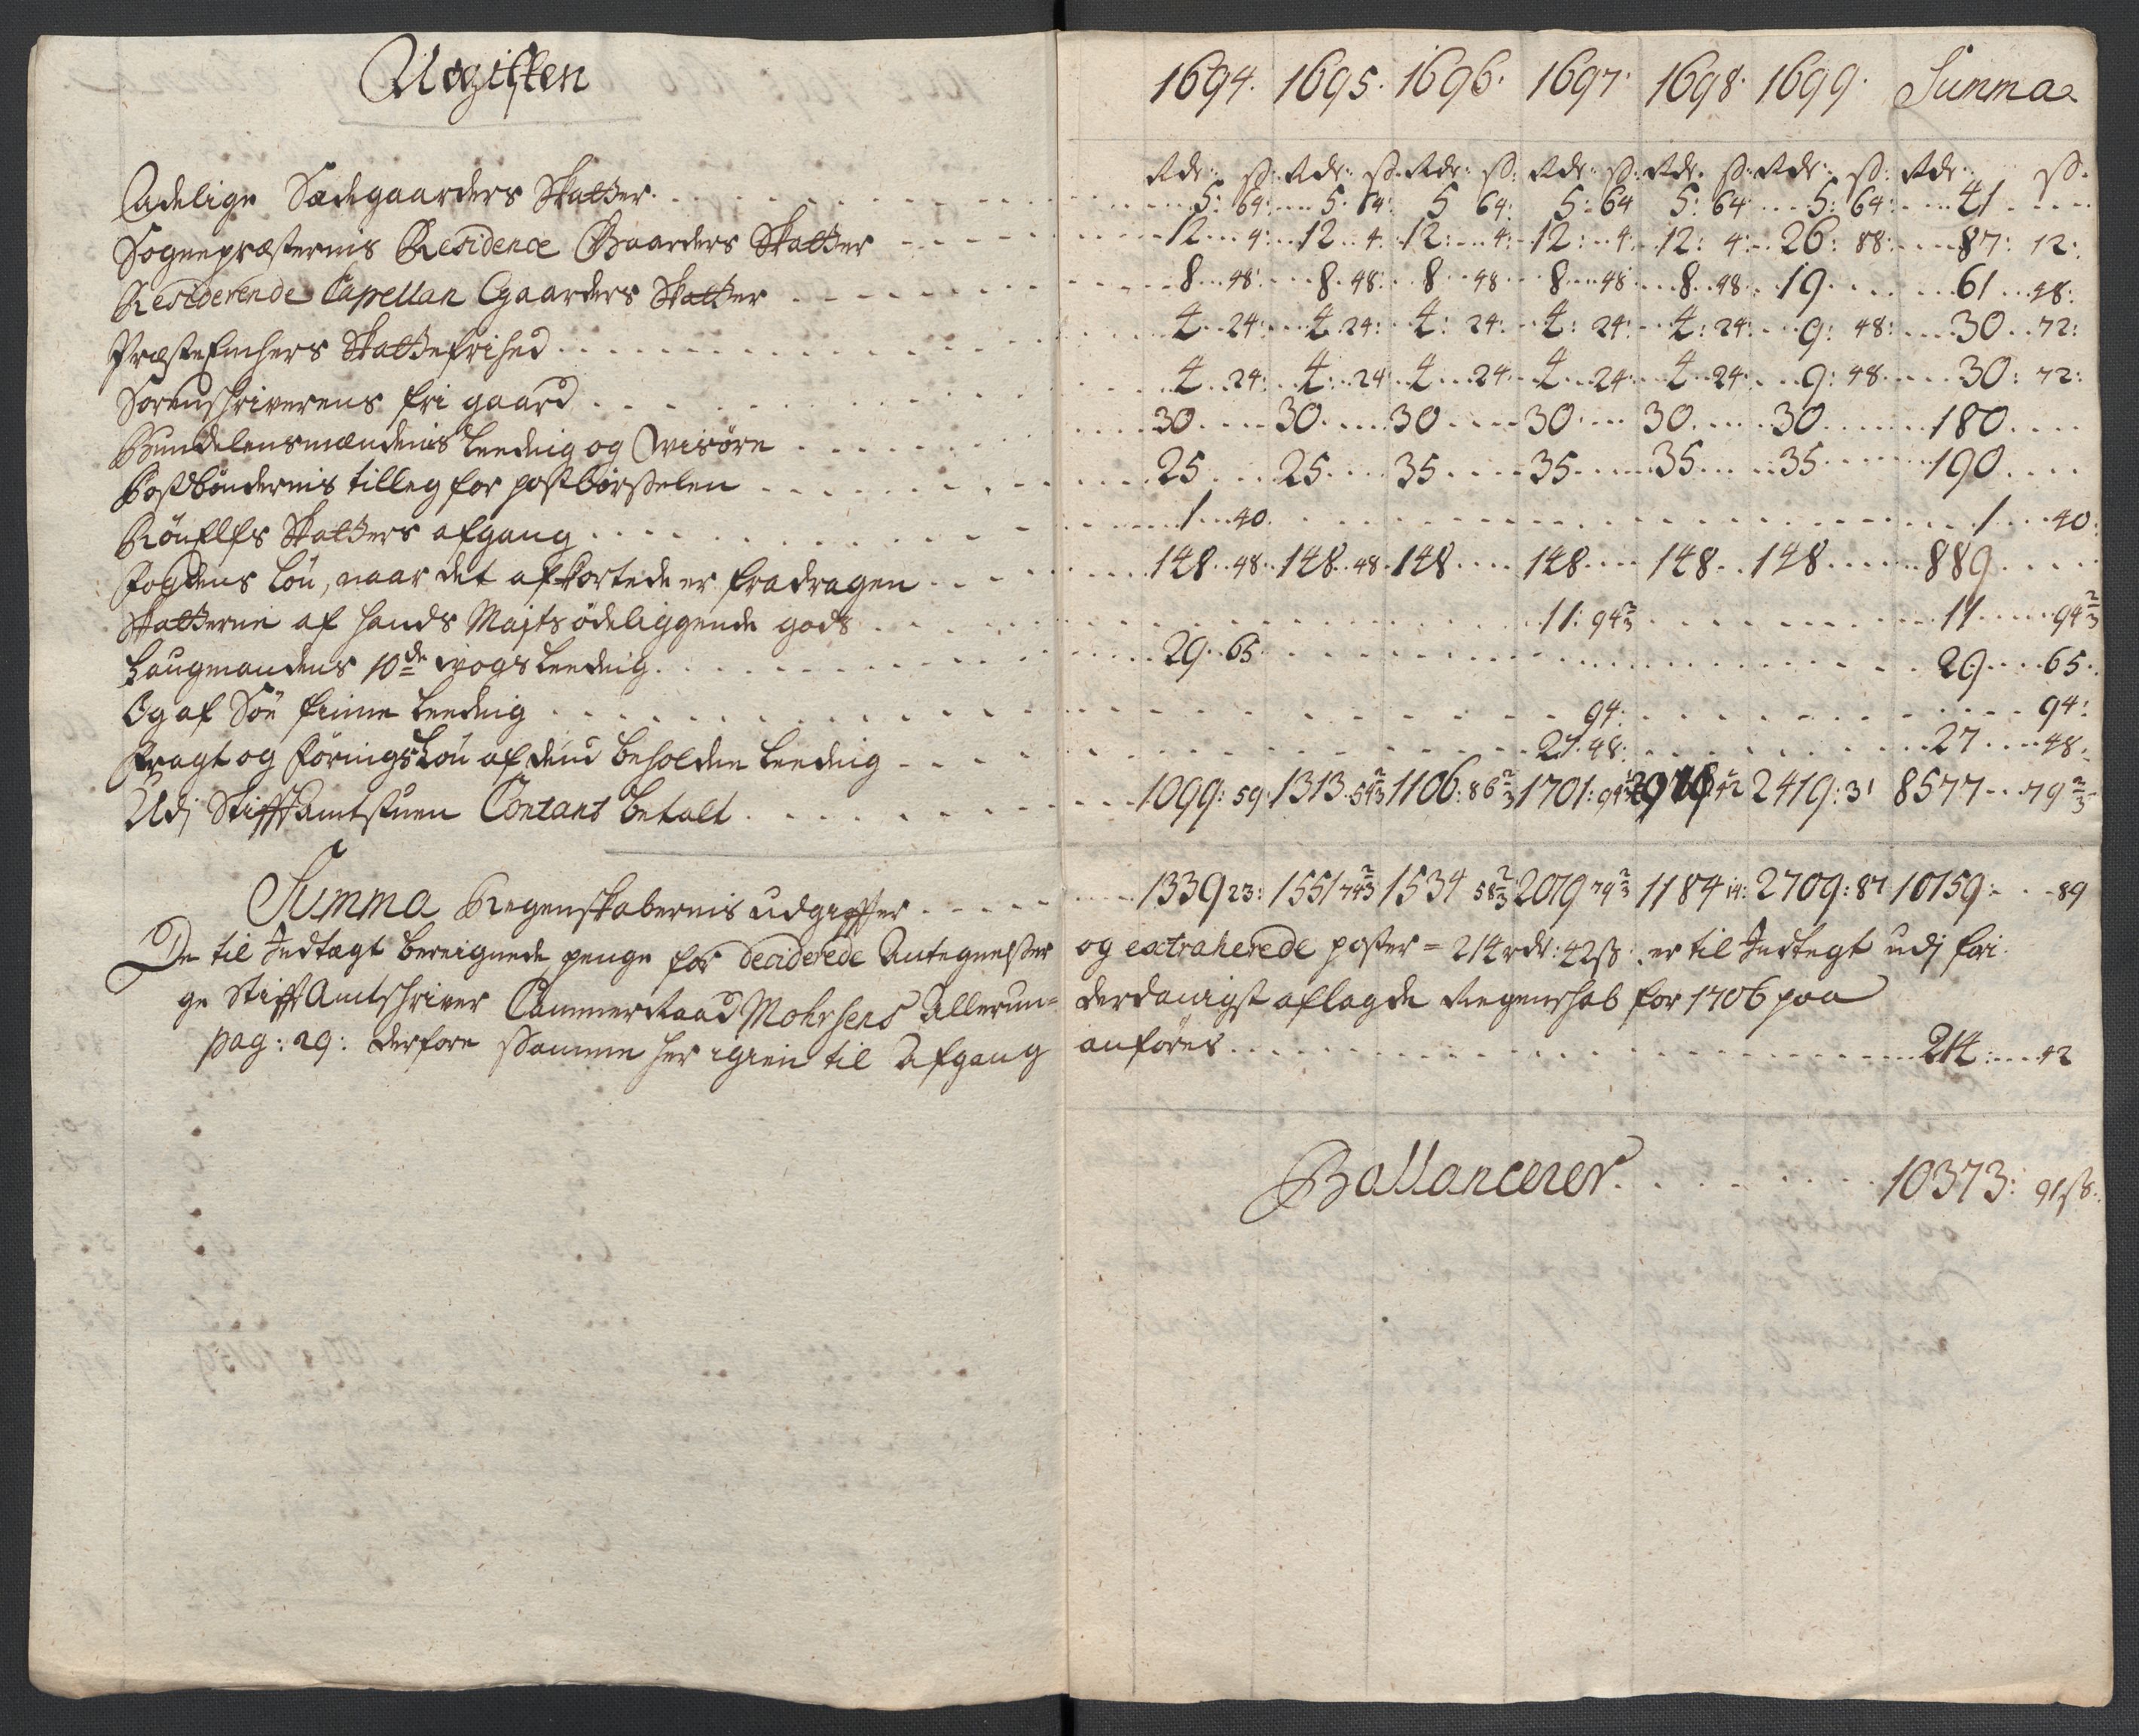 Udgiften 1694. 1695. 1696. 1697. 1698. 1699. Summa
Rdr: ß: Rdr: ß: Rdr: ß: Rdr: ß: Rdr: ß: Rdr: ß: Rdr: ß.
Adelige Sædegaarders Skatter 5: 64: 5: 64: 5 64: 5: 64 5: 64 5: 64: 41
Sognepræsternis Residence Gaarders Skatter 12 4: 12 4. 12: 4: 12: 4. 12: 4: 26: 88: 87: 12:
Residerende Capellan Gaarders Skatter 8 48: 8. 48: 8 48 8 48 8 48 19 61 48:
Præste Enchers Skattefrihed 4 24: 4 24: 4: 24: 4: 24: 4: 24: 9: 48: 30 72:
Sorenschriverens fri gaard 4 24: 4: 24 4 24 4 24 4 24 9: 48 30: 72:
Bundelensmændenis Leeding og Wisöre 30 30 30 30 30 30 180
Postböndernis tilleg for postbörselen 25 25 35 35 35 35 190
Skatters afgang 1 40. 1 40:
Fogdens Lön, naar det afkortede er fradragen 148 48 148 48 148 148 148 148 889
Skatterne af hands Majts ödeliggende gods 11: 94 2/3 11 94 2/3
Laugmandens 10de wogs Leeding 29 65 29 65:
Og af Söe finne Leeding 94: 94:
Fragt og föringsLön af dend beholden Leeding 27 48: 27 48:
Udj StifftAmtstuen Contant betalt 1099: 59 1313 54 2/3 1106: 86 2/3 1701: 42 2419: 31 8577 79 2/3
Summa Regenskabernis udgiffter 1339 23: 1551 74 2/3 1534 58 2/3 2079 79 2/3 1184 14: 2709: 87 10159 89
De til Indtægt bereignede penge for deciderede Antegnelser og extraherede poster = 214 rdr: 42 ß: er til Indtegt udj fri-
ge StifftAmtschriver CammerRaad Mohrsens Allerun= derdanigst aflagde Regenschab for 1706 paa
pag: 29: derfore Samme her igien til Afgang anföres 214: 42
Ballancerer. 10373: 91 ß: